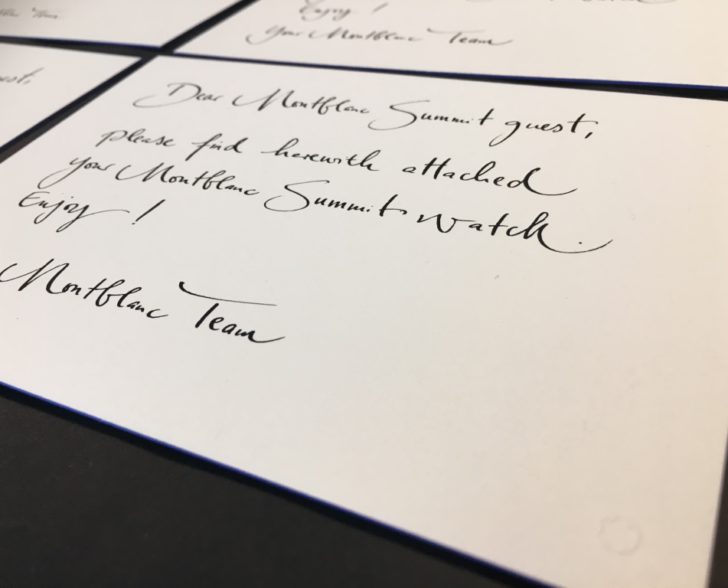 Enjoy!
Your Montblanc Team
Dear Montblanc Summit guest,
please find herewith attached
your Montblanc Summit watch.
Enjoy!
Montblanc Team